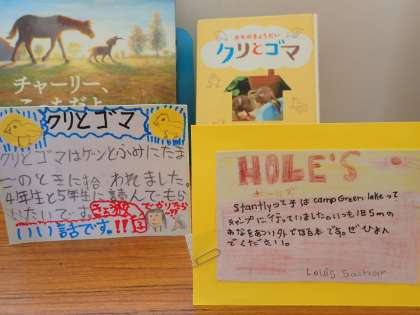 チャーリー、
こっちだよ
カモのきょうだい
クリとゴマ
クリとゴマ
クリとゴマはゲンとふみにたま
このときに拾われました。
4年生と5年生に読んでもら
いたいです。
いい話です。!!
HOLE'S
ホールズ
Stanlyって子は camp Green lake って
キャンプに行っていました。いつも1日5mの
あなをあつい外でほる本です。ぜひよん
でください。
Louis Sachar